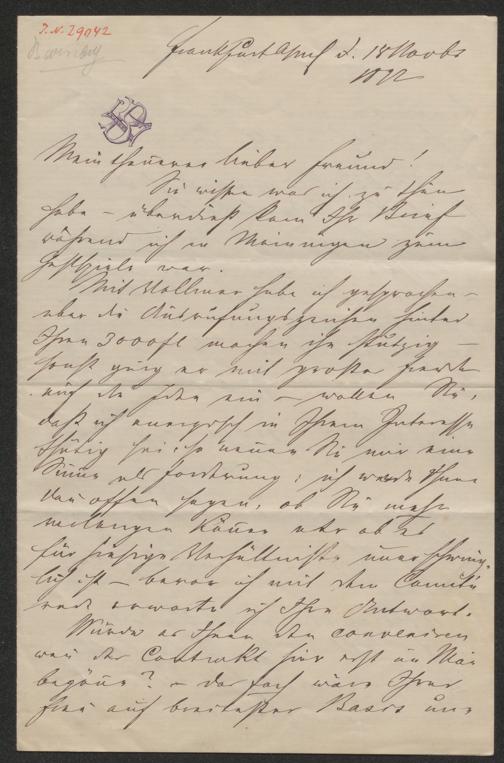 I.N. 29042
Barnay
Frankfurt a/M d. 18 Novbr
1872
Mein theuerer lieber Freund!
Sie wissen was ich zu thun
habe – überdieß kam Ihr Brief
während ich in Meiningen zum
Gastspiele war.
Mit Vollmer habe ich gesprochen –
aber die Ausrufungszeichen hinter
Ihren 3000 fl machen ihn stutzig –
sonst ging er mit großer Freude
auf die Idee ein – wollen Sie,
daß ich energisch in Ihrem Interesse
thätig sei: so nennen Sie mir eine
Summe als Forderung; ich werde Ihnen
dann offen sagen, ob Sie mehr
verlangen können oder ob es
für hiesige Verhältnisse unerschwing-
lich ist – bevor ich mit dem Comité
rede erwarte ich Ihre Antwort.
Würde es Ihnen denn conveniren
wenn der Contrakt hier erst im Mai
begönne? – das Fach wäre Ihrer
Frau auf breitester Basis uns